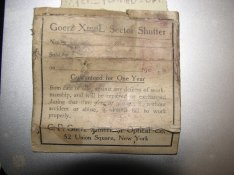 Goerz XmaL Sector Shutter
No
Sold
190
Guaranteed for One Year
from date of sale, against any defects of work-
manship, and will be repaired or exchanged
during that time free of charge, if, without
accident or abuse, it should fail to work
properly.
C. P. Goerz American Optical Co.
52 Union Square, New York